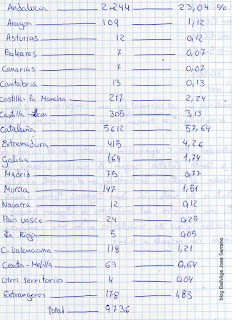 Andalucia 2.244 23,04 %
Aragon 109 1,12
Asturias 12 0,12
Baleares 7 0,07
Canarias 7 0,07
Cantabria 13 0,13
Castilla-la Mancha 217 2,24
Castilla-León 305 3,13
Cataluña 5612 57,64
Extremadura 415 4,26
Galicia 169 1,74
Madrid 75 0,77
Murcia 147 1,51
Navarra 12 0,12
Pais vasco 24 0,25
La Rioja 5 0,05
C. Valenciana 118 1,21
Ceuta-Melilla 63 0,64
Otros territorios 4 0,04
Extrangeros 178 1,83
Total 9736
blog Bellvitge Jose Serrano